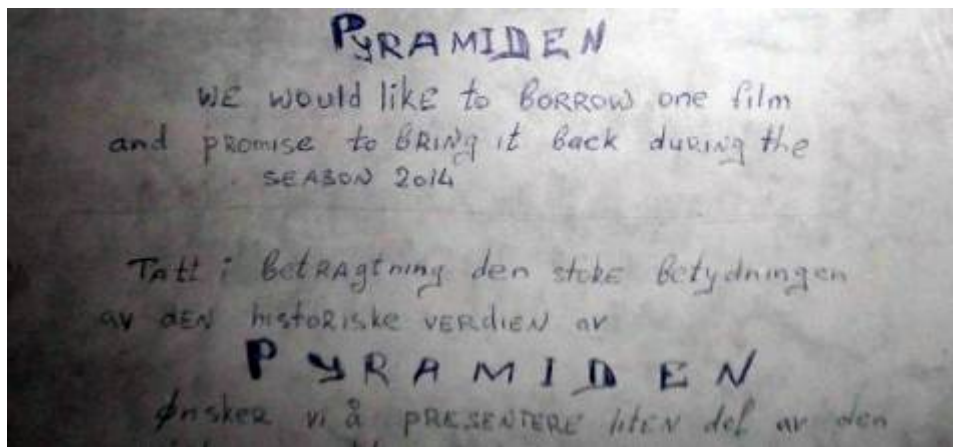 PYRAMIDEN
WE would likE to BORROW one film
and PROMISE to BRINg it back duRINg the
SEASON 2014
Tatt i BetRAgtning den stoRE Betydningen
av dEN histoRiske VERdiEN av
PYRAMIDEN
ØnskER vi å PRESENTERE litEN del av den